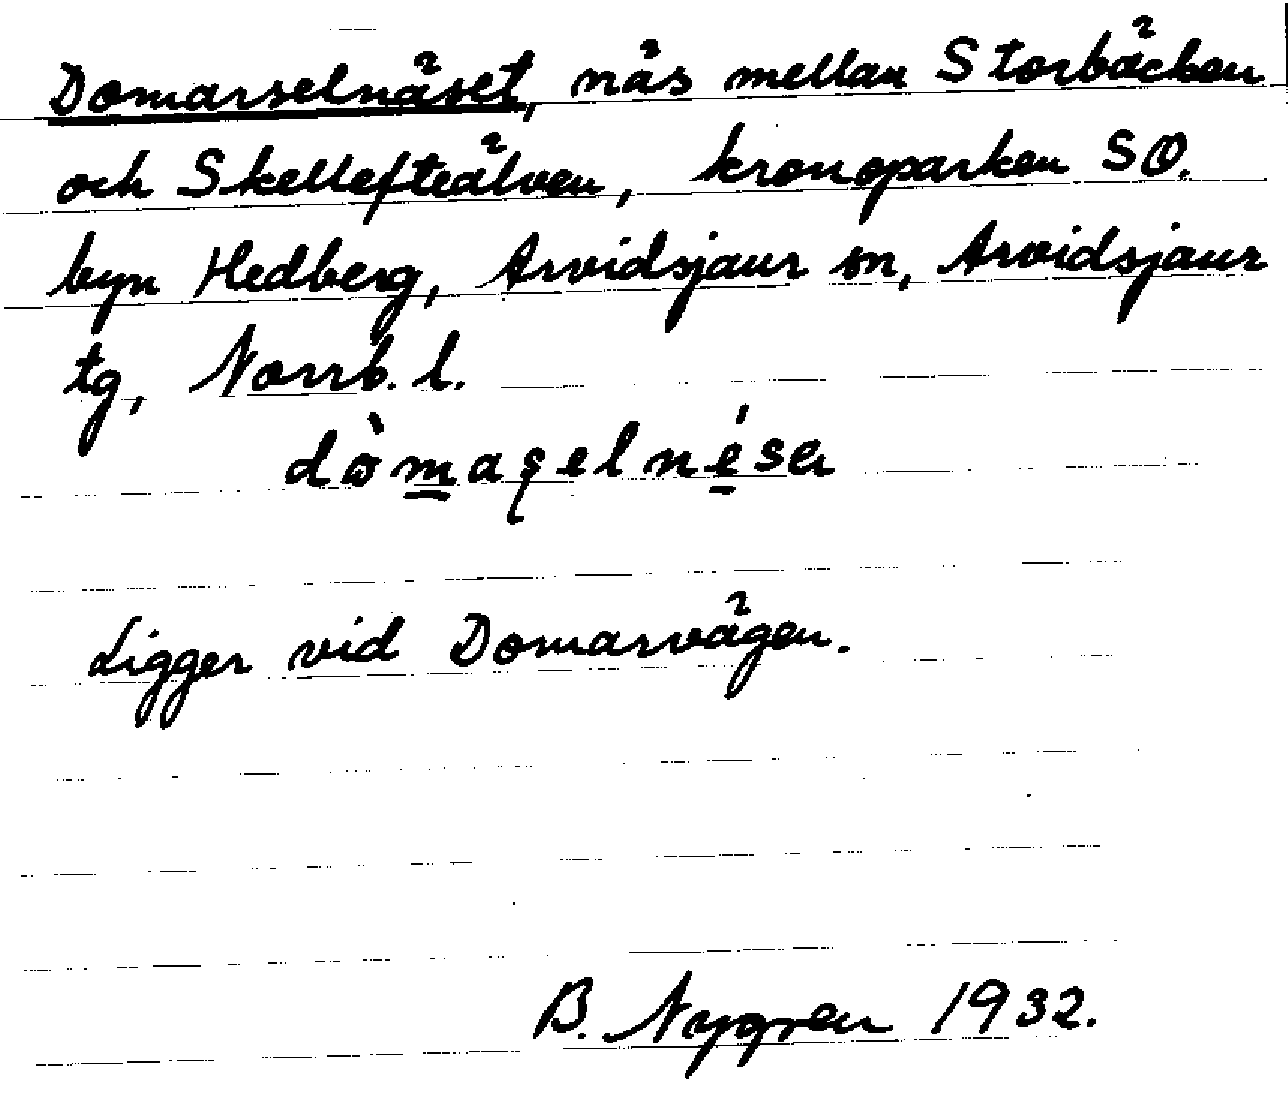 Domarselnäset, näs mellan Storbäcken
och Skellefteälven, kronoparken SO.
byn Hedberg, Arvidsjaur sn, Arvidsjaur
tg, Norrb. l.
dòmaşelnésa
Ligger vid Domarvägen.
B. Nygren 1932.